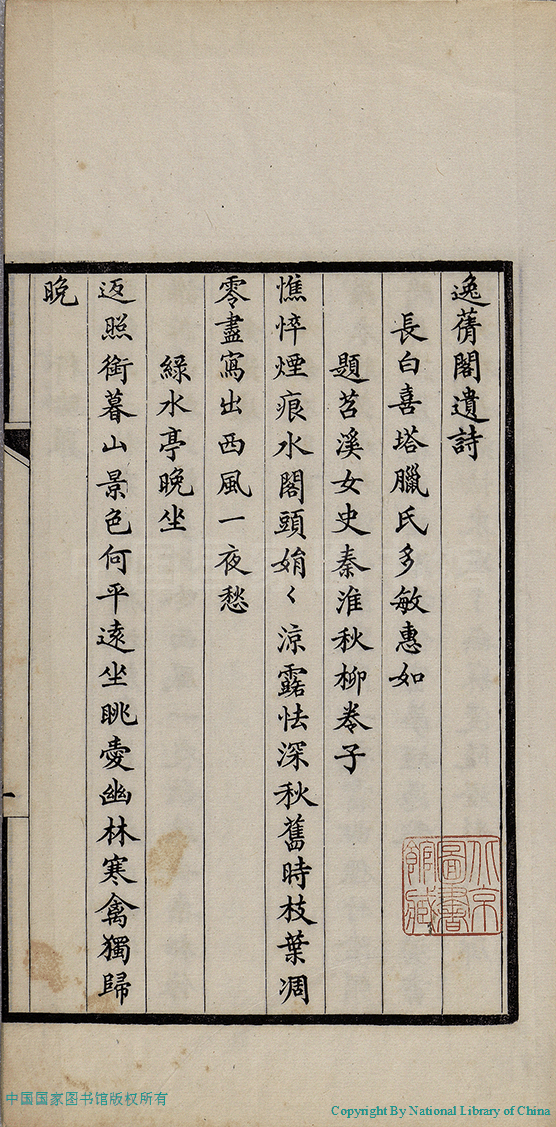 逸蒨閣遺詩
長白喜塔臘氏多敏惠如
題苕溪女史秦淮秋柳卷子
憔悴煙痕水閣頭娟〻涼露怯深秋舊時枝葉凋
零盡寫出西風一夜愁
綠水亭晚坐
返照銜暮山景色何平遠坐眺愛幽林寒禽獨歸
晚
北京
圖書
館藏
中国国家图书馆版权所有
Copyright By National Library of China